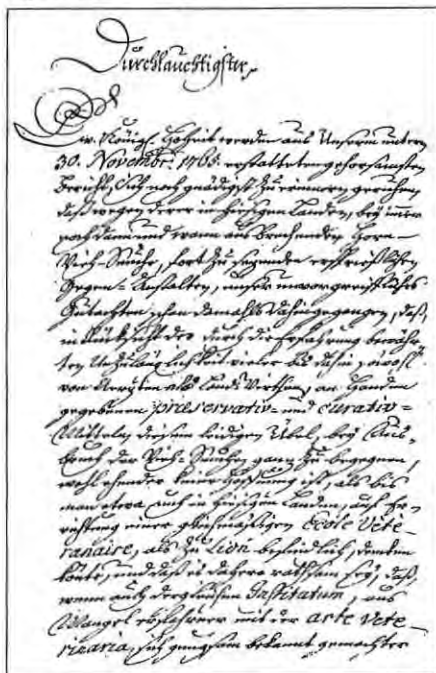 Durchlauchtigster,
Ew. Königl. Hoheit werden aus Unserm unterm
30. November 1765. erstatteten gehorsamsten
Bericht, Sich noch gnädigst zu erinnern geruhen,
daß wegen derer in hiesigen Landen, bey immer
noch dann und wann aus brechenden Horn-
Vieh-Seuche, fort zu sezenden ersprießlichen
Gegen-Anstalten, unser unvorgreifliches
Gutachten schon damahls dahin gegangen, daß,
in Rücksicht der durch die Erfahrung bewähr-
ten Unzulänglichkeit vieler bis dahin sowohl
von Aerzten als Land Wirthen, an Handen
gegebenen præservativ- und curativ-
Mitteln, diesem leidigen Übel, bey Aus-
bruch der Vieh-Seuchen ganz zu begegnen,
wohl ehender keine Hoffnung ist, als bis
man etwa auch in hiesigen Landen, auf Er-
richtung einer gleichmäßigen école vété-
ranaire, als zu Lion befindlich, denken
könte, und daß es dahero rathsam sey, daß,
wenn auch dergleichen Institutum, aus
Mangel erfahrner mit der arte vete-
ricaria, sich genugsam bekannt gemachter